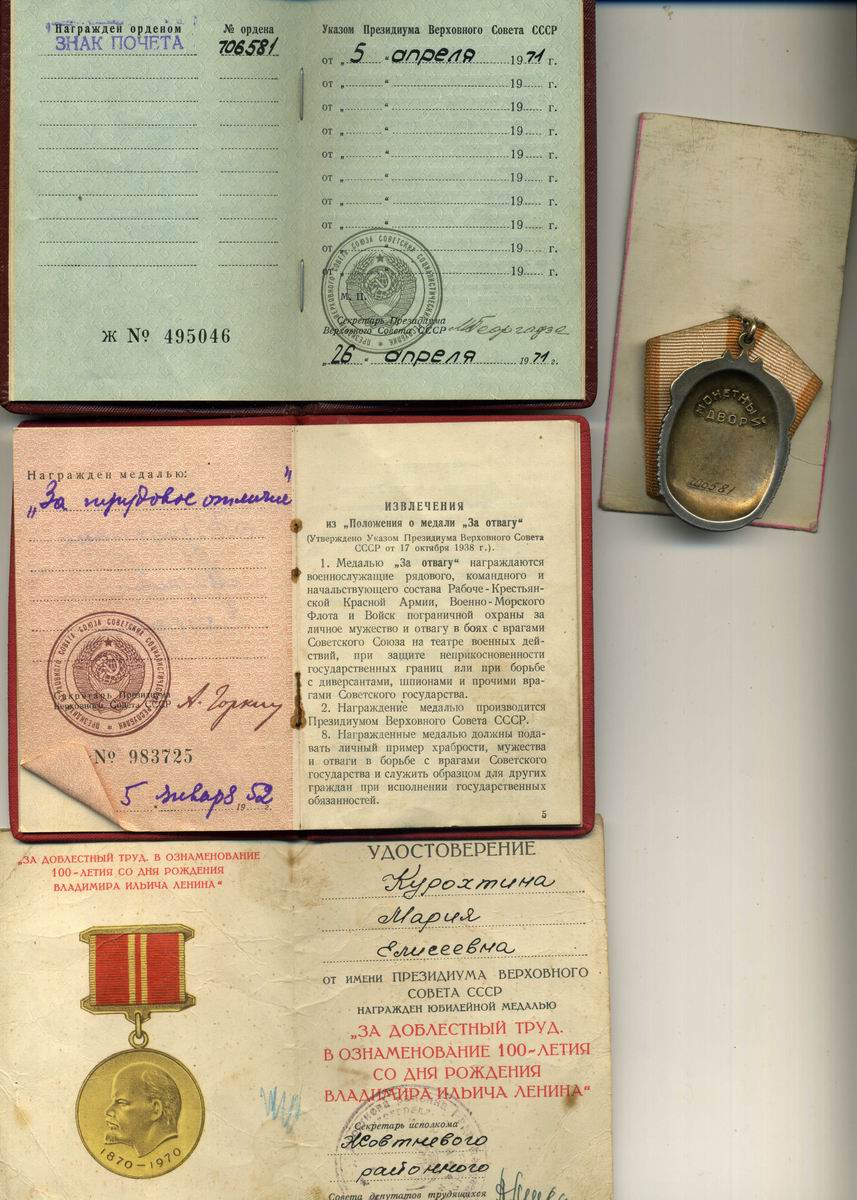 Награжден орденом
ЗНАК ПОЧЕТА
№ ордена
706581
Ж № 495046
Указом Президиума Верховного Совета СССР
от „ 5 “ апреля 1971 г.
от „ “ 19 г.
от „ “ 19 г.
от „ “ 19 г.
от „ “ 19 г.
от „ “ 19 г.
от „ “ 19 г.
от „ “ 19 г.
от „ “ 19 г.
от „ “ 19 г.
М. П.
Секретарь Президиума
Верховного Совета СССР МГеоргадзе
„ 26 “ апреля 1971 г.
МОНЕТНЫЙ
ДВОР
Награжден медалью:
„За трудовое отличие“
Секретарь Президиума
Верховного Совета СССР А. Горкин
№ 983725
5 января 1952 г.
ИЗВЛЕЧЕНИЯ
из „Положения о медали „За отвагу“
(Утверждено Указом Президиума Верховного Совета
СССР от 17 октября 1938 г.).
1. Медалью „За отвагу“ награждаются
военнослужащие рядового, командного и
начальствующего состава Рабоче-Крестьян-
ской Красной Армии, Военно-Морского
Флота и Войск пограничной охраны за
личное мужество и отвагу в боях с врагами
Советского Союза на театре военных дей-
ствий, при защите неприкосновенности
государственных границ или при борьбе
с диверсантами, шпионами и прочими вра-
гами Советского государства.
2. Награждение медалью производится
Президиумом Верховного Совета СССР.
8. Награжденные медалью должны пода-
вать личный пример храбрости, мужества
и отваги в борьбе с врагами Советского
государства и служить образцом для других
граждан при исполнении государственных
обязанностей.
5
„ЗА ДОБЛЕСТНЫЙ ТРУД. В ОЗНАМЕНОВАНИЕ
100-ЛЕТИЯ СО ДНЯ РОЖДЕНИЯ
ВЛАДИМИРА ИЛЬИЧА ЛЕНИНА“
1870–1970
УДОСТОВЕРЕНИЕ
Курохтина
Мария
Елисеевна
ОТ ИМЕНИ ПРЕЗИДИУМА ВЕРХОВНОГО
СОВЕТА СССР
НАГРАЖДЕН ЮБИЛЕЙНОЙ МЕДАЛЬЮ
„ЗА ДОБЛЕСТНЫЙ ТРУД.
В ОЗНАМЕНОВАНИЕ 100-ЛЕТИЯ
СО ДНЯ РОЖДЕНИЯ
ВЛАДИМИРА ИЛЬИЧА ЛЕНИНА“
Секретарь исполкома
Жовтневого
районного
Совета депутатов трудящихся